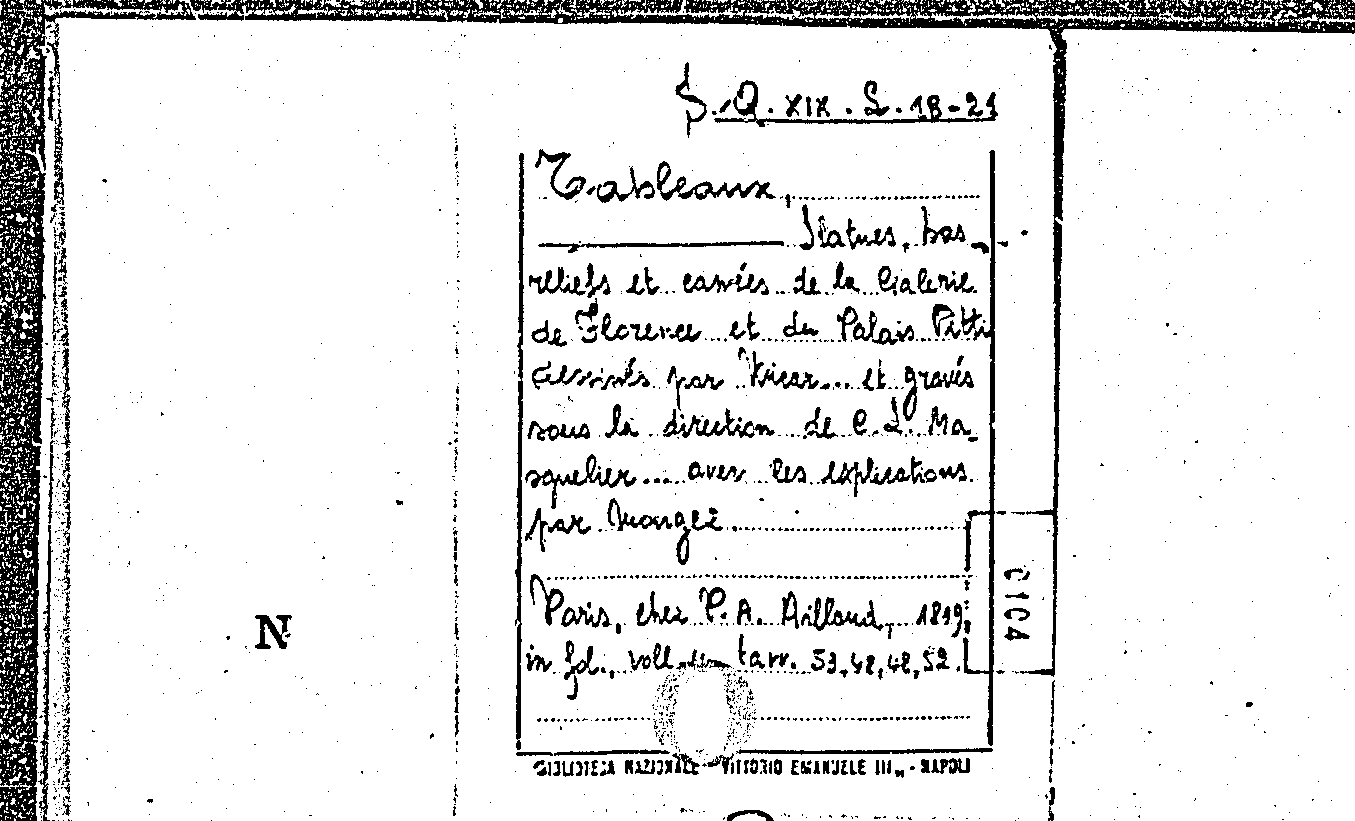 S. Q. XIX. L. 18-21
Tableaux,
Statues, bas-
reliefs et camées de la Galerie
de Florence et du Palais Pitti
dessinés par Wicar... et gravés
sous la direction de C. L. Ma-
squelier... avec les explications
par Mongez
Paris, chez P. A. Aillaud, 1819,
in fol., voll. tavv. 53, 48, 48, 52.
C1C4
N
BIBLIOTECA NAZIONALE "VITTORIO EMANUELE III" - NAPOLI